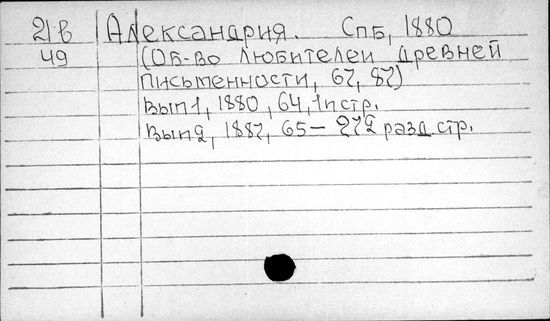 21в Александрия. СПБ, 1880
49 (Об-во любителей древней
письменности, 67, 87)
Вып1, 1880, 64, 1п стр.
Вып2, 1887, 65- 272 разд стр.